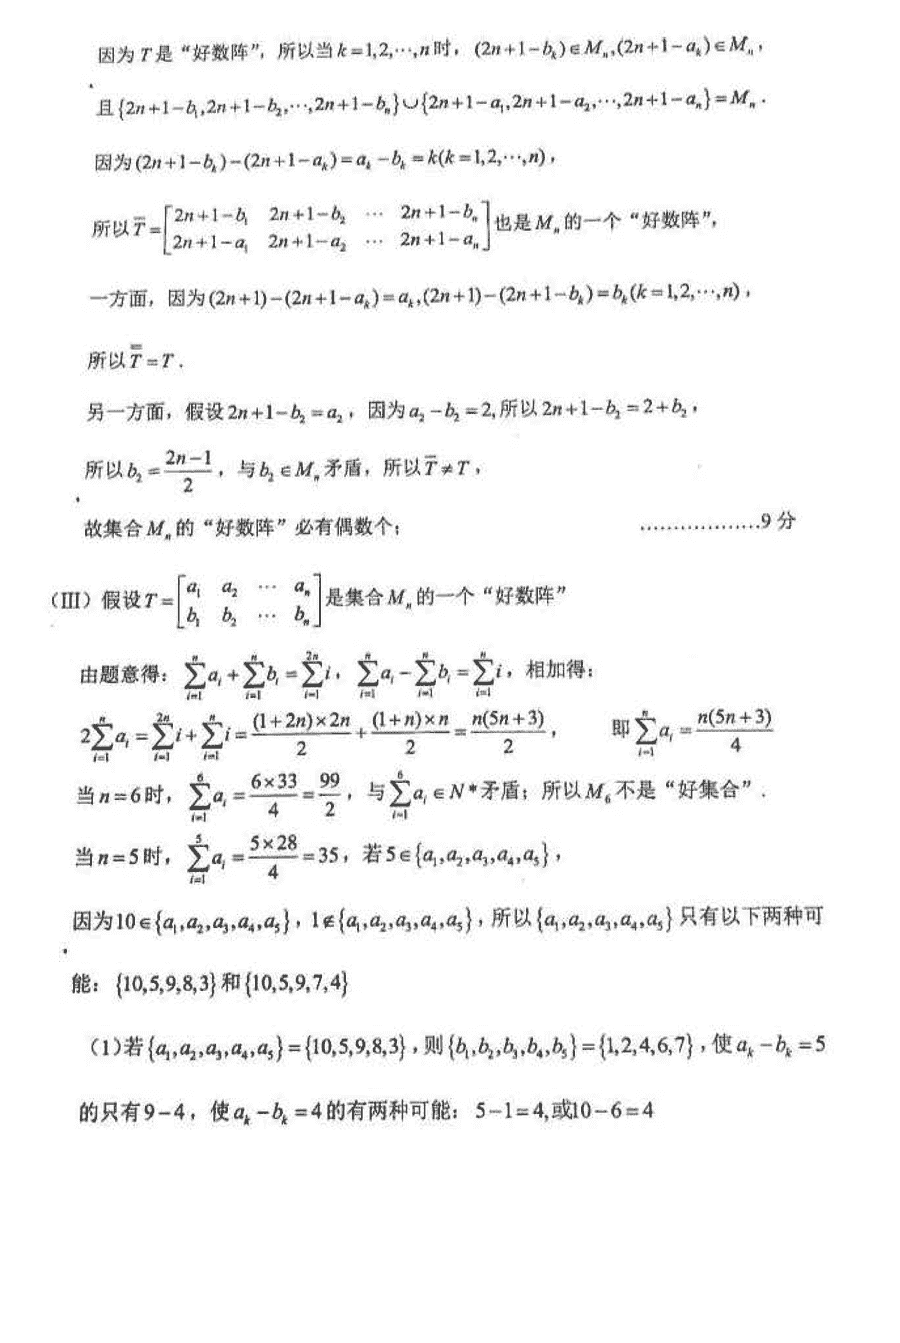 因为T是“好数阵”，所以当k=1,2,⋯,n时，(2n+1−b_k)∈M_n,(2n+1−a_k)∈M_n，
且{2n+1−b_1,2n+1−b_2,⋯,2n+1−b_n}∪{2n+1−a_1,2n+1−a_2,⋯,2n+1−a_n}=M_n．
因为(2n+1−b_k)−(2n+1−a_k)=a_k−b_k=k(k=1,2,⋯,n)，
所以T̅=[2n+1−b_1 2n+1−b_2 ⋯ 2n+1−b_n; 2n+1−a_1 2n+1−a_2 ⋯ 2n+1−a_n]也是M_n的一个“好数阵”，
一方面，因为(2n+1)−(2n+1−a_k)=a_k,(2n+1)−(2n+1−b_k)=b_k(k=1,2,⋯,n)，
所以T̿=T．
另一方面，假设2n+1−b_2=a_2，因为a_2−b_2=2,所以2n+1−b_2=2+b_2，
所以b_2=(2n−1)/2，与b_2∈M_n矛盾，所以T̅≠T，
故集合M_n的“好数阵”必有偶数个； ………………9分
（Ⅲ）假设T=[a_1 a_2 ⋯ a_n; b_1 b_2 ⋯ b_n]是集合M_n的一个“好数阵”
由题意得：∑_{i=1}^{n}a_i+∑_{i=1}^{n}b_i=∑_{i=1}^{2n}i，∑_{i=1}^{n}a_i−∑_{i=1}^{n}b_i=∑_{i=1}^{n}i，相加得：
2∑_{i=1}^{n}a_i=∑_{i=1}^{2n}i+∑_{i=1}^{n}i=(1+2n)×2n/2+(1+n)×n/2=n(5n+3)/2， 即∑_{i=1}^{n}a_i=n(5n+3)/4
当n=6时，∑_{i=1}^{6}a_i=6×33/4=99/2，与∑_{i=1}^{6}a_i∈N*矛盾；所以M_6不是“好集合”．
当n=5时，∑_{i=1}^{5}a_i=5×28/4=35，若5∈{a_1,a_2,a_3,a_4,a_5}，
因为10∈{a_1,a_2,a_3,a_4,a_5}，1∉{a_1,a_2,a_3,a_4,a_5}，所以{a_1,a_2,a_3,a_4,a_5}只有以下两种可
能：{10,5,9,8,3}和{10,5,9,7,4}
（1)若{a_1,a_2,a_3,a_4,a_5}={10,5,9,8,3}，则{b_1,b_2,b_3,b_4,b_5}={1,2,4,6,7}，使a_k−b_k=5
的只有9−4，使a_k−b_k=4的有两种可能：5−1=4,或10−6=4